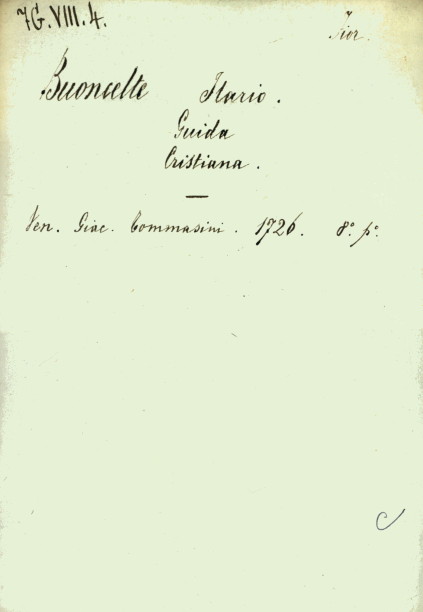 7G.VIII.4.
Fior.
Buoncelte Ilario.
Guida
Cristiana.
Ven. Giac. Tommasini. 1726. 8.º p.º